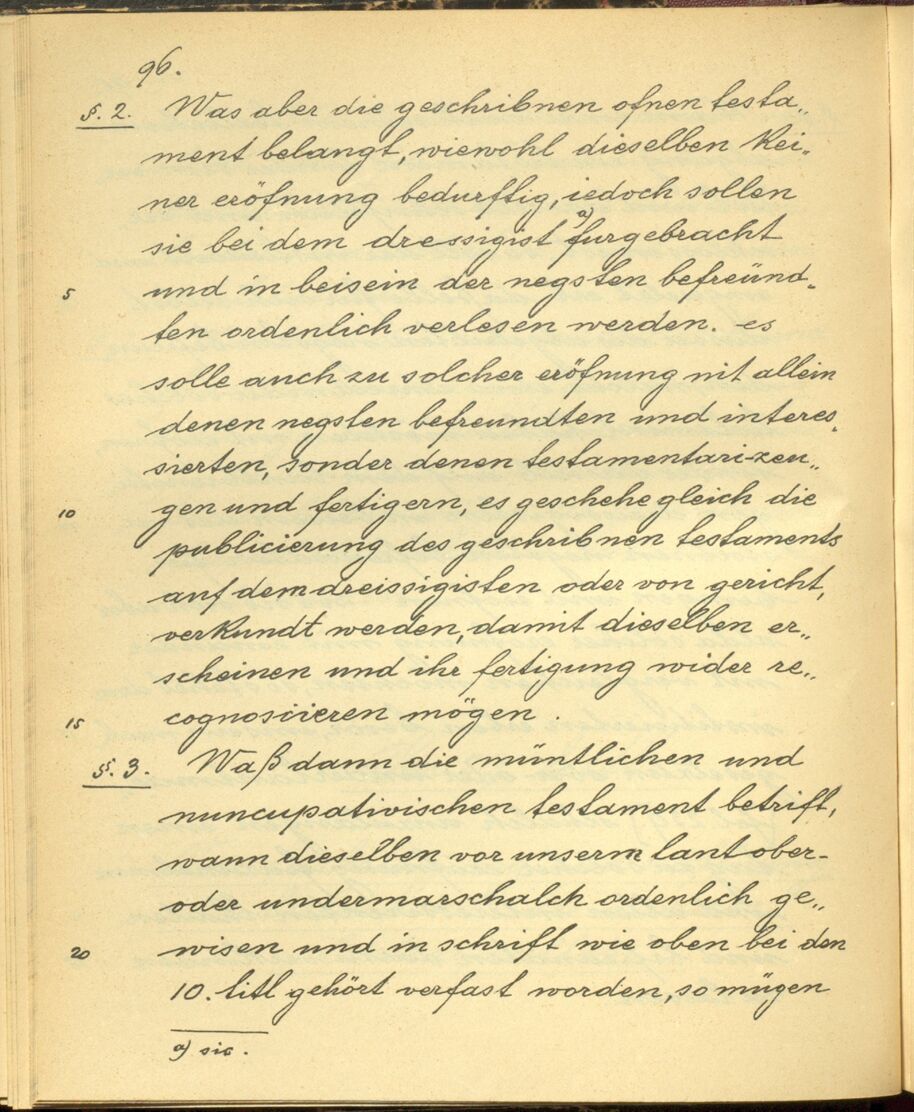 96.
§. 2. Was aber die geschribnen ofnen testa„
ment belangt, wiewohl dieselben kei„
ner eröfnung bedurfftig, iedoch sollen
sie bei dem dressigist a) furgebracht
5 und in beisein der negsten befreünd„
ten ordenlich verlesen werden. es
solle auch zu solcher eröfnung nit allein
denen negsten befreundten und interes„
sierten, sonder denen testamentari-zeu„
10 gen und fertigern, es geschehe gleich die
publicierung des geschribnen testaments
auf dem dreissigisten oder von gericht,
verkundt werden, damit dieselben er„
scheinen und ihr fertigung wider re„
15 cognoscieren mögen.
§. 3. Waß dann die müntlichen und
nuncupativischen testament betrift,
wann dieselben vor unserm lantober-
oder undermarschalch ordenlich ge„
20 wisen und in schrift wie oben bei den
10. titl gehört verfast worden, so mügen
a) sic.